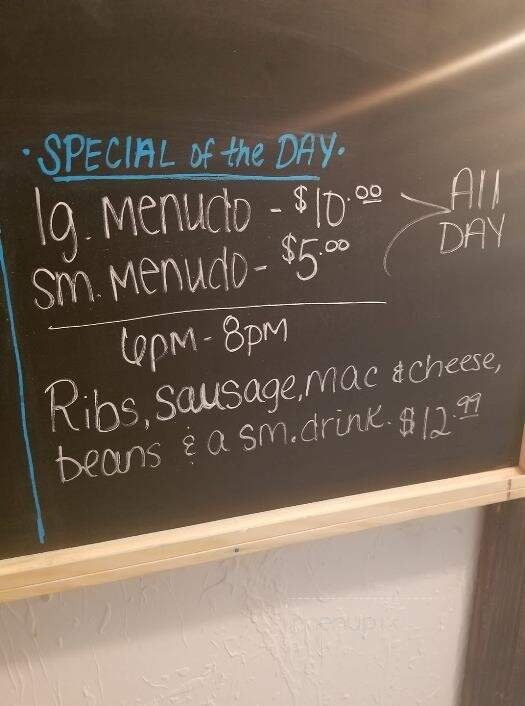 • SPECIAL of the DAY •
lg. Menudo - $10.00
sm. Menudo - $5.00
All
DAY
6pm - 8pm
Ribs, sausage, mac & cheese,
beans & a sm. drink. $12.99